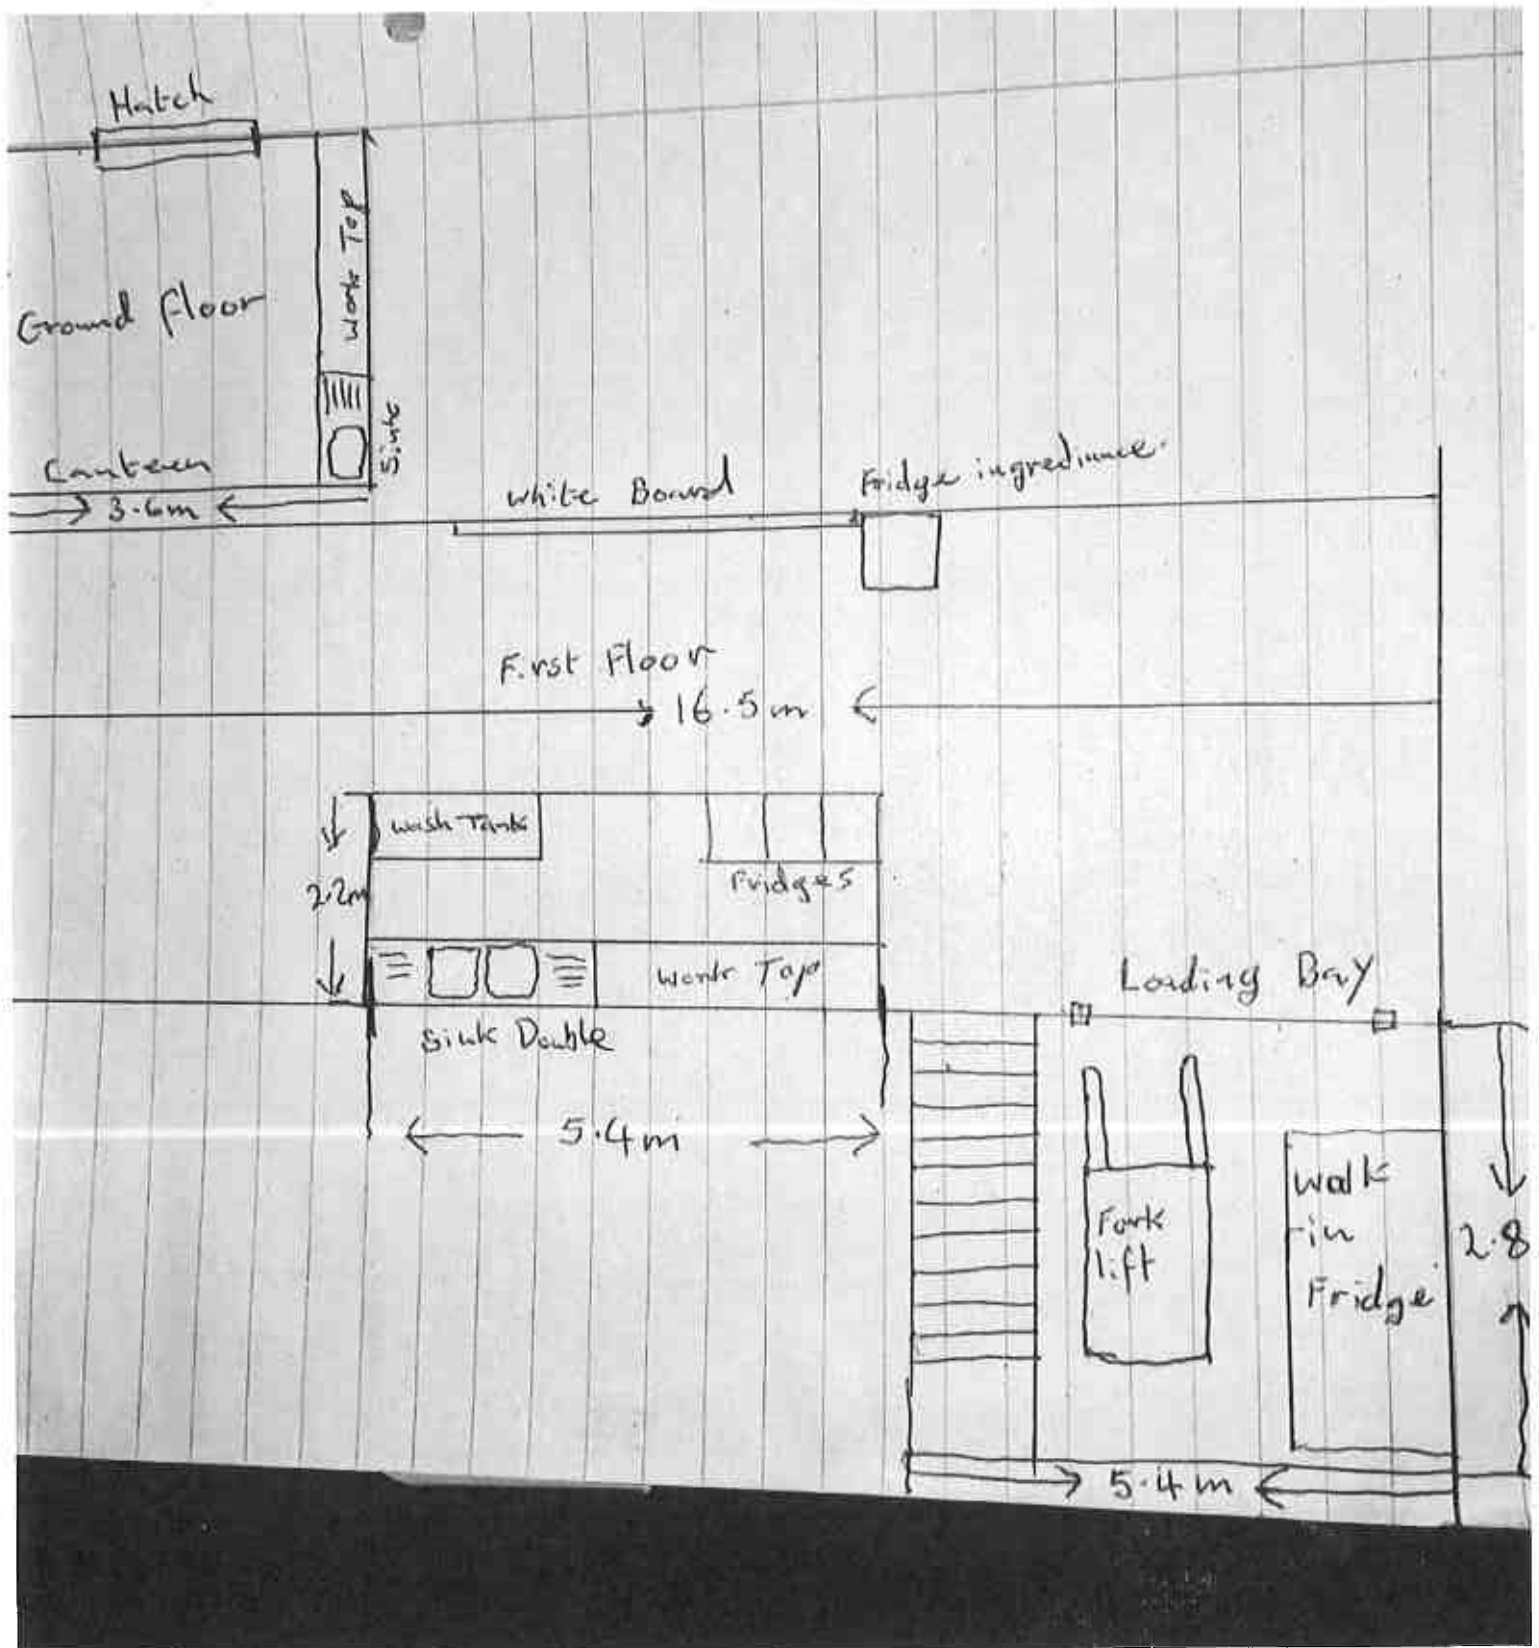 Hatch
Work Top
Ground floor
Sink
Canteen
3.6m
White Board
Fridge ingredinnce.
First Floor
16.5m
Wash Tank
Fridges
2.2m
Work Top
Sink Double
Loading Bay
5.4m
Fork
lift
Walk
-in
Fridge
2.8
5.4m